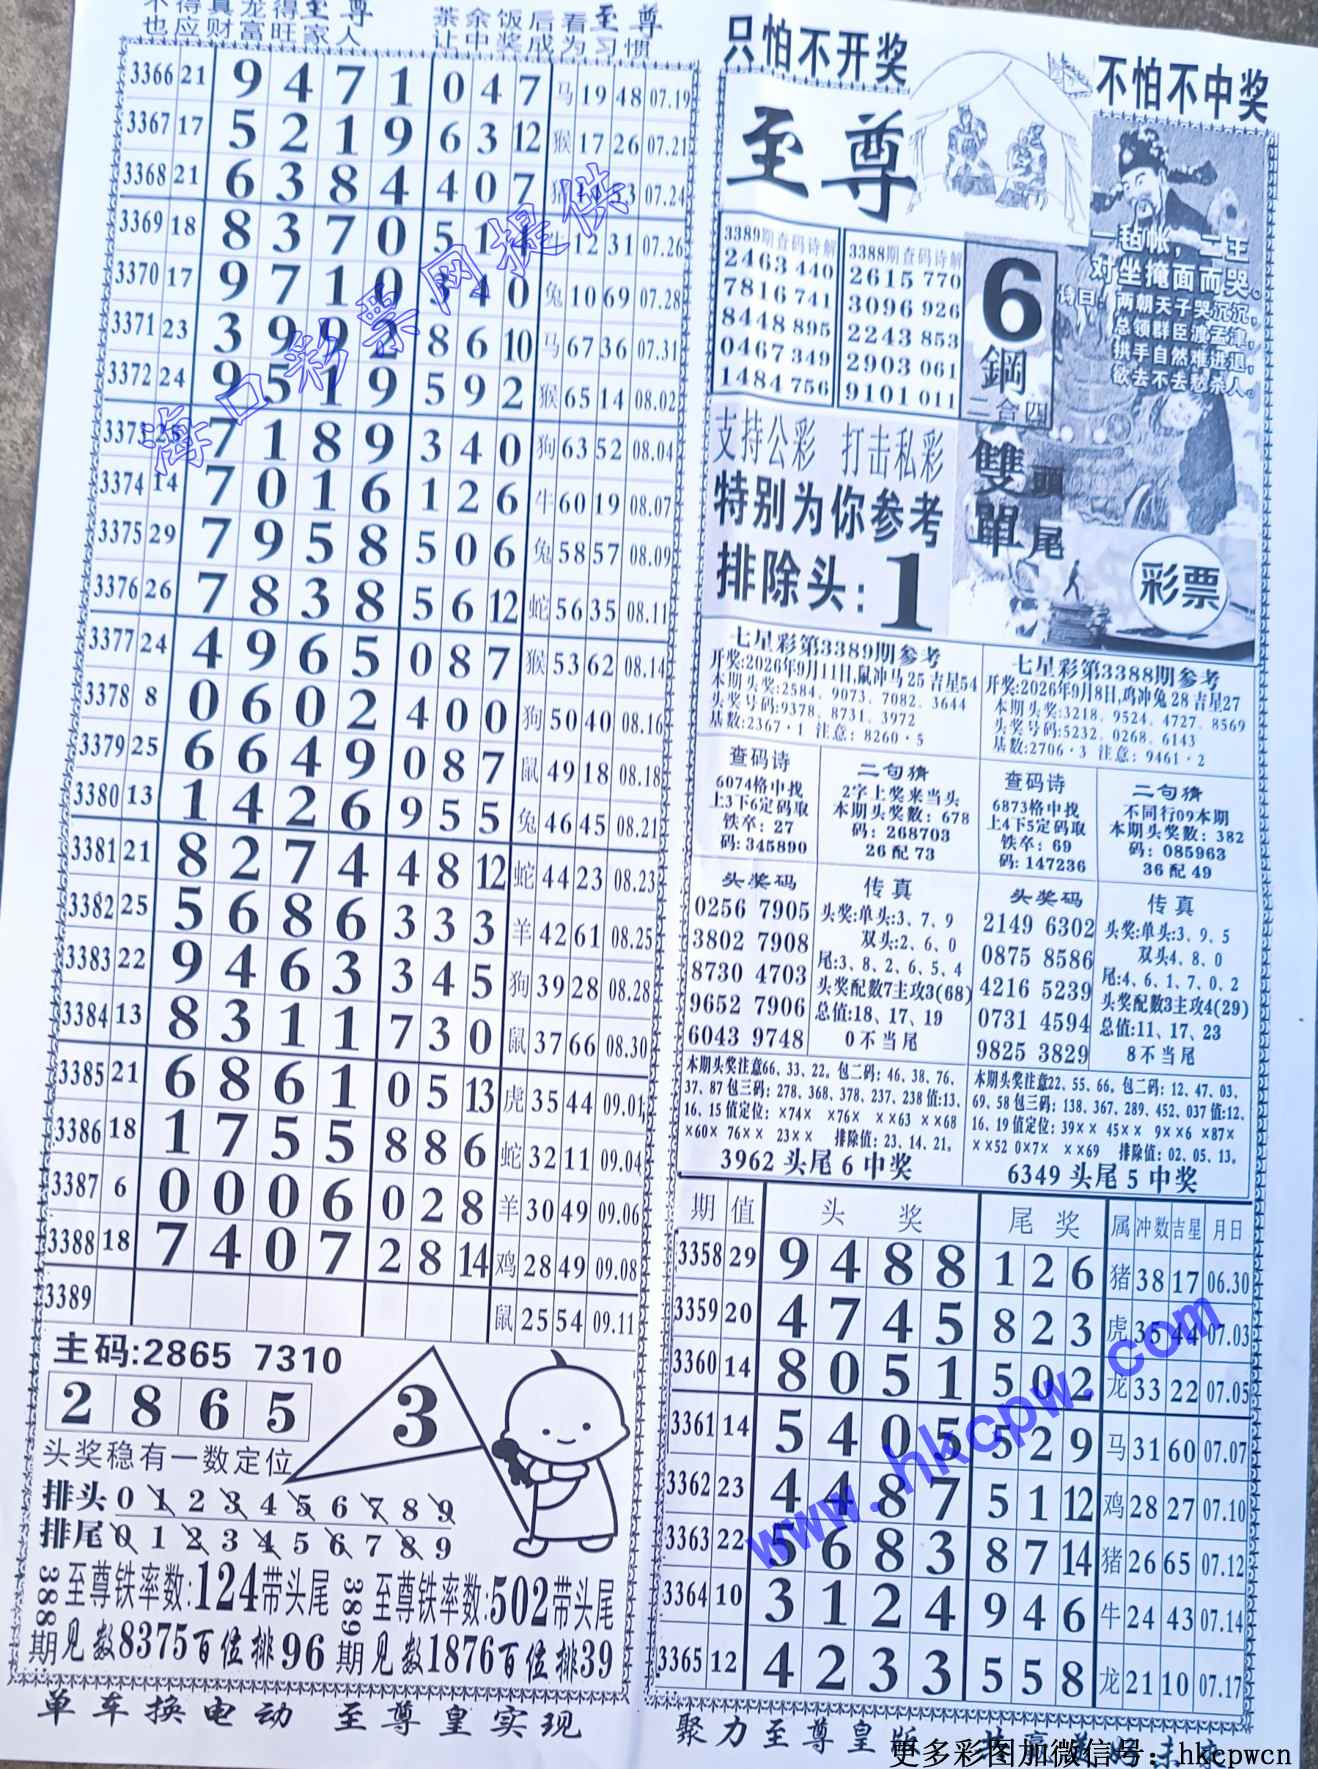 也应财富旺家人
茶余饭后看至尊
让中奖成为习惯
3366 21 9 4 7 1 0 4 7 马 19 48 07.19
3367 17 5 2 1 9 6 3 12 猴 17 26 07.21
3368 21 6 3 8 4 4 0 7 07.24
3369 18 8 3 7 0 5 1 12 31 07.26
3370 17 9 7 1 0 3 4 0 兔 10 69 07.28
3371 23 3 9 9 2 8 6 10 马 67 36 07.31
3372 24 9 5 1 9 5 9 2 猴 65 14 08.02
3373 7 1 8 9 3 4 0 狗 63 52 08.04
3374 14 7 0 1 6 1 2 6 牛 60 19 08.07
3375 29 7 9 5 8 5 0 6 兔 58 57 08.09
3376 26 7 8 3 8 5 6 12 蛇 56 35 08.11
3377 24 4 9 6 5 0 8 7 猴 53 62 08.14
3378 8 0 6 0 2 4 0 0 狗 50 40 08.16
3379 25 6 6 4 9 0 8 7 鼠 49 18 08.18
3380 13 1 4 2 6 9 5 5 兔 46 45 08.21
3381 21 8 2 7 4 4 8 12 蛇 44 23 08.23
3382 25 5 6 8 6 3 3 3 羊 42 61 08.25
3383 22 9 4 6 3 3 4 5 狗 39 28 08.28
3384 13 8 3 1 1 7 3 0 鼠 37 66 08.30
3385 21 6 8 6 1 0 5 13 虎 35 44 09.01
3386 18 1 7 5 5 8 8 6 蛇 32 11 09.04
3387 6 0 0 0 6 0 2 8 羊 30 49 09.06
3388 18 7 4 0 7 2 8 14 鸡 28 49 09.08
3389 鼠 25 54 09.11
主码:2865 7310
2 8 6 5
3
头奖稳有一数定位
排头 0 1 2 3 4 5 6 7 8 9
排尾 0 1 2 3 4 5 6 7 8 9
3388期
至尊铁率数:124带头尾
见数8375百位排96
389期
至尊铁率数:502带头尾
见数1876百位排39
单车换电动 至尊皇实现
只怕不开奖
不怕不中奖
至尊
3389期查码诗解
2463 440
7816 741
8448 895
0467 349
1484 756
3388期查码诗解
2615 770
3096 926
2243 853
2903 061
9101 011
6
鋼
二合四
雙頭
單尾
一毡帐，二王
对坐掩面而哭。
诗曰：两朝天子哭沉沉，
总领群臣渡孟津，
拱手自然难进退，
欲去不去愁杀人。
支持公彩 打击私彩
特别为你参考
排除头:1
彩票
七星彩第3389期参考
开奖:2026年9月11日,鼠冲马25 吉星54
本期头奖:2584、9073、7082、3644
头奖号码:9378、8731、3972
基数:2367·1 注意: 8260·5
查码诗
6074格中找
上3下6定码取
铁卒: 27
码: 345890
二句猜
2字上奖来当头
本期头奖数: 678
码: 268703
26 配 73
头奖码
0256 7905
3802 7908
8730 4703
9652 7906
6043 9748
传真
头奖:单头:3、7、9
双头:2、6、0
尾:3、8、2、6、5、4
头奖配数7主攻3(68)
总值:18、17、19
0 不当尾
本期头奖注意66、33、22、包二码: 46、38、76、
37、87 包三码: 278、368、378、237、238 值:13、
16、15 值定位: ×74× ×76× ××63 ××68
×60× 76×× 23×× 排除值: 23、14、21、
3962 头尾 6 中奖
七星彩第3388期参考
开奖:2026年9月8日,鸡冲兔 28 吉星27
本期头奖:3218、9524、4727、8569
头奖号码:5232、0268、6143
基数:2706·3 注意: 9461·2
查码诗
6873格中找
上4下5定码取
铁卒: 69
码: 147236
二句猜
不同行09本期
本期头奖数: 382
码: 085963
36 配 49
头奖码
2149 6302
0875 8586
4216 5239
0731 4594
9825 3829
传真
头奖:单头:3、9、5
双头4、8、0
尾:4、6、1、7、0、2
头奖配数3主攻4(29)
总值:11、17、23
8 不当尾
本期头奖注意22、55、66、包二码: 12、47、03、
69、58 包三码: 138、367、289、452、037 值:12、
16、19 值定位: 39×× 45×× 9××6 ×87×
××52 0×7× ××69 排除值: 02、05、13。
6349 头尾 5 中奖
期 值 头 奖 尾 奖 属 冲数 吉星 月日
3358 29 9 4 8 8 1 2 6 猪 38 17 06.30
3359 20 4 7 4 5 8 2 3 虎 35 44 07.03
3360 14 8 0 5 1 5 0 2 龙 33 22 07.05
3361 14 5 4 0 5 5 2 9 马 31 60 07.07
3362 23 4 4 8 7 5 1 12 鸡 28 27 07.10
3363 22 5 6 8 3 8 7 14 猪 26 65 07.12
3364 10 3 1 2 4 9 4 6 牛 24 43 07.14
3365 12 4 2 3 3 5 5 8 龙 21 10 07.17
聚力至尊皇版
海口彩票网提供
www.hkcpw.com
更多彩图加微信号：hkcpwcn